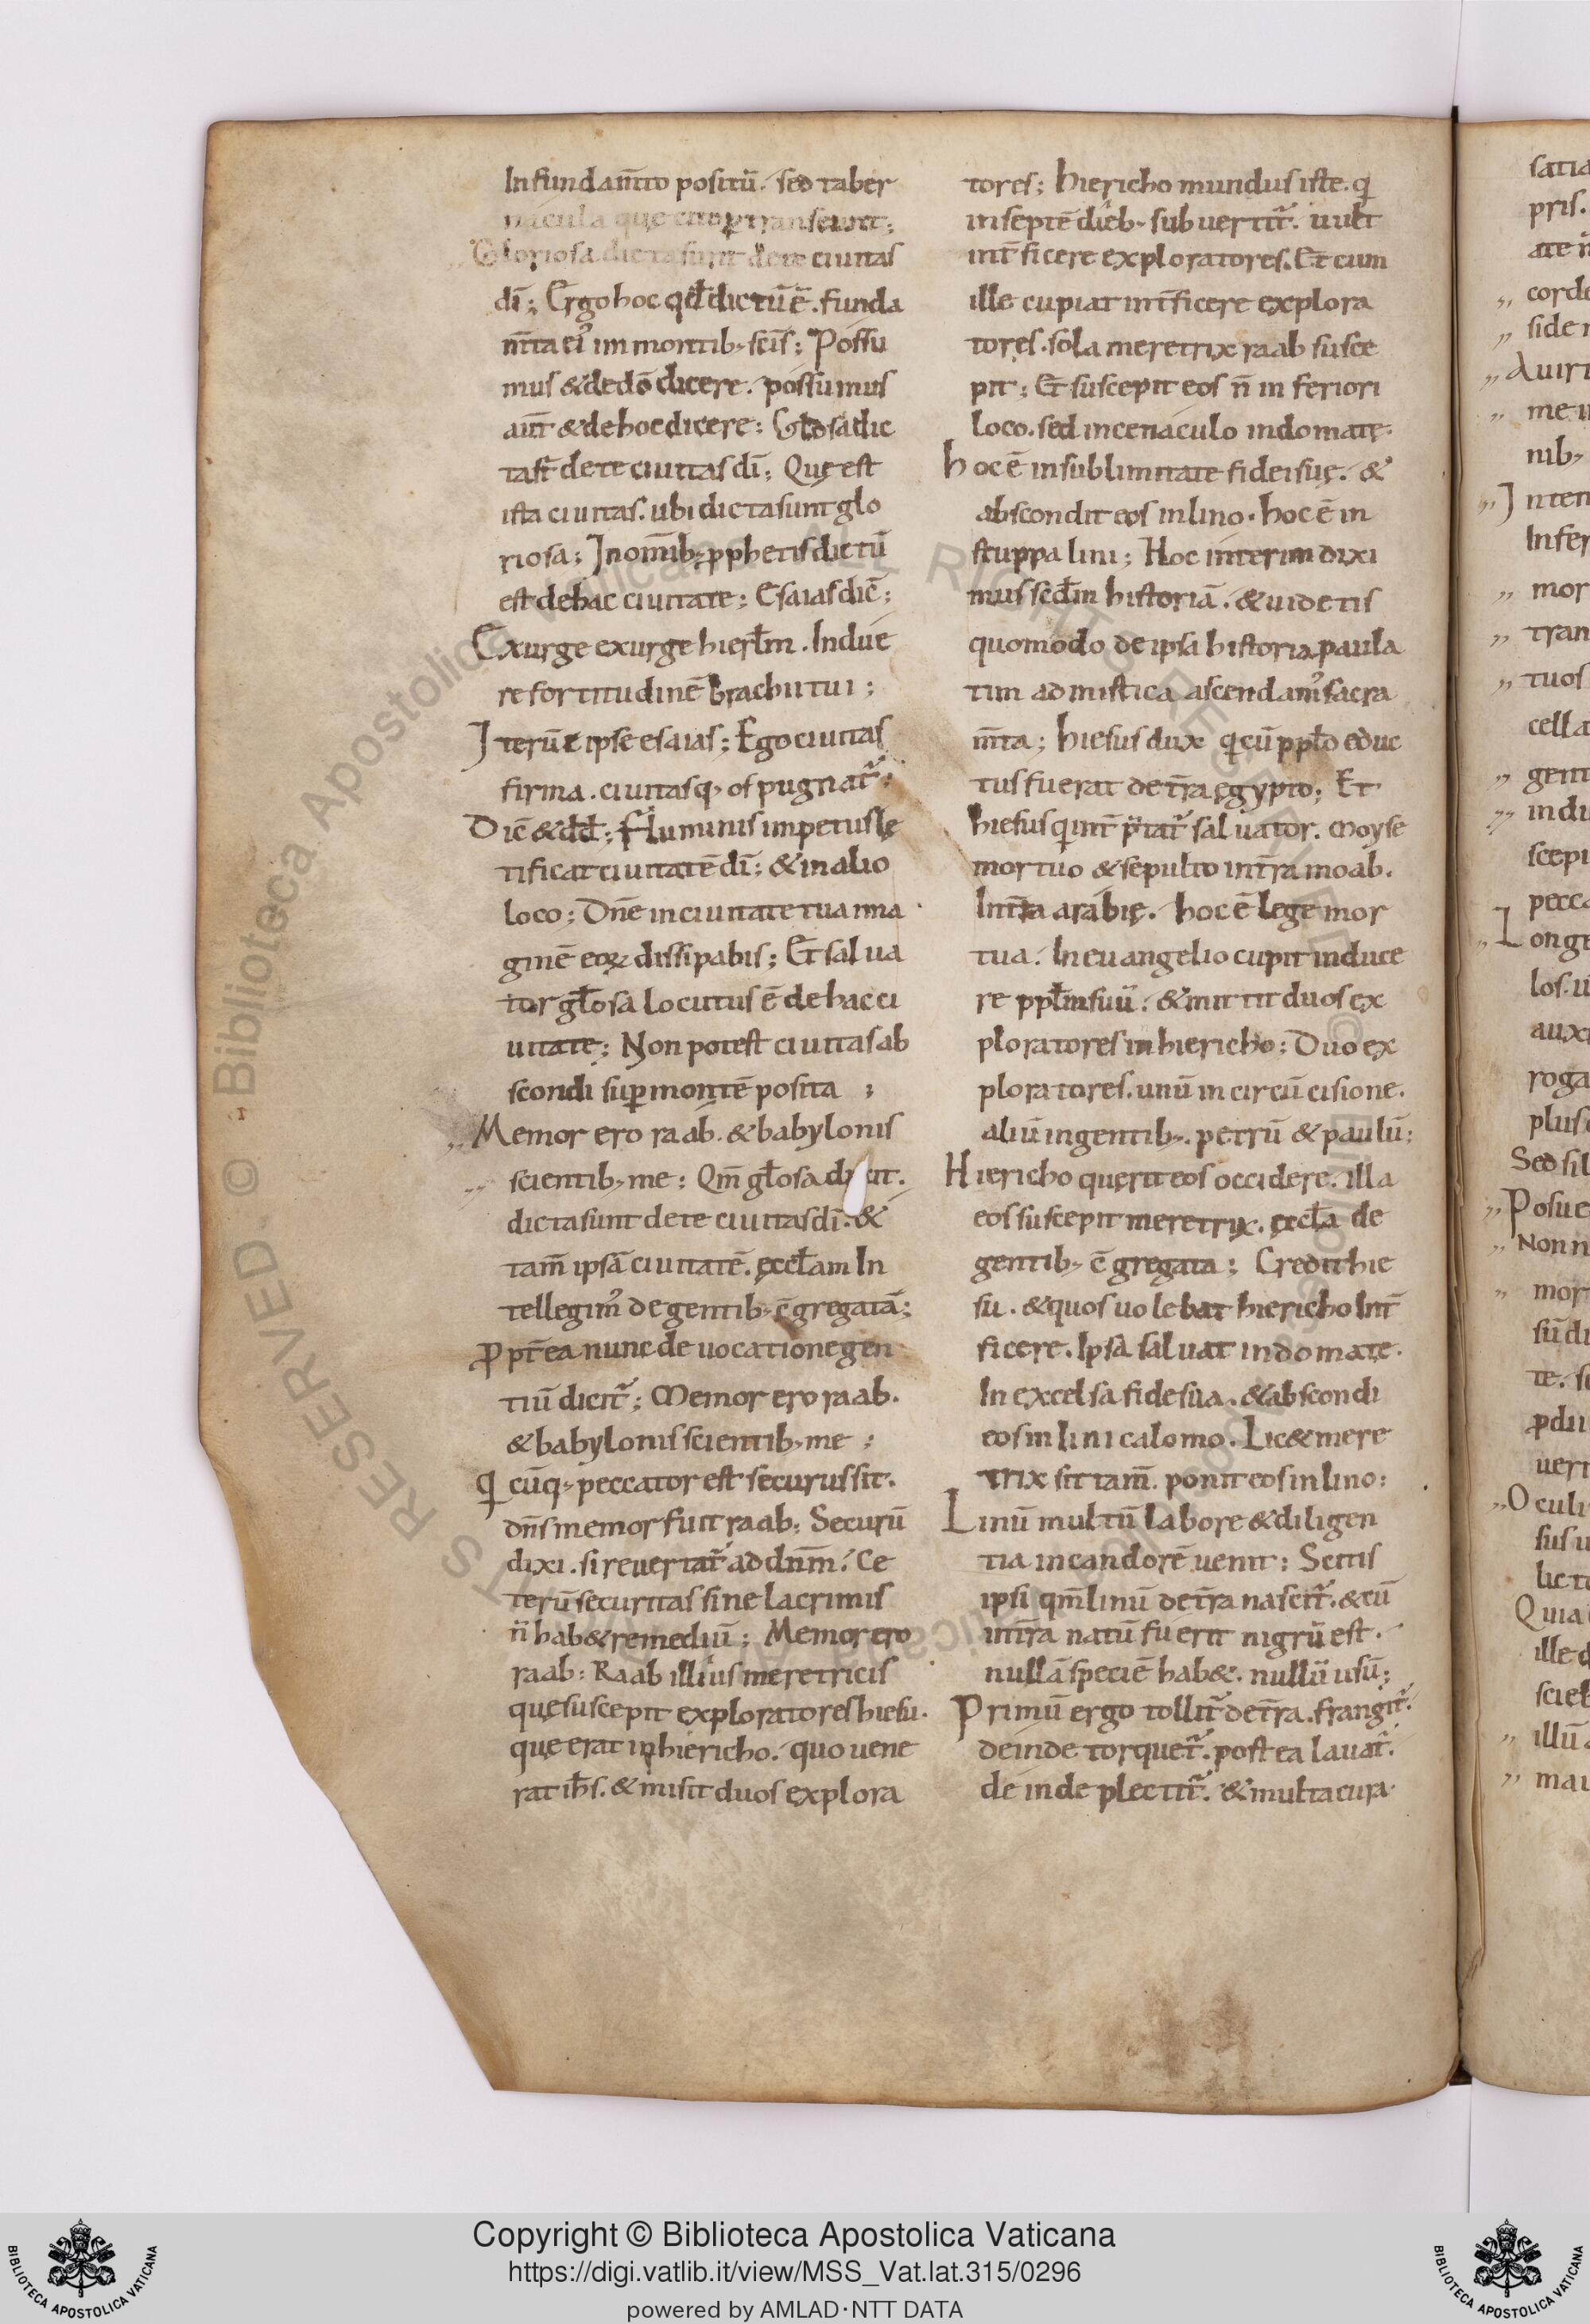 In fundam̅to positū. sed taber
nacula que cito ꝑtranseunt;
Gloriosa dicta sunt de te ciuitas
dī; Ergo hoc qđ dictū ē. funda
m̅ta ei᾿ in montib; scīs; Possu
mus & de dō dicere. possumus
aūt & de hoc dicere; Głosa dic
ta sт̄ de te ciuitas dī; Quę est
ista ciuitas. ubi dicta sunt glo
riosa; In om̅ib; ꝓphetis dictū
est de hac ciuitate; Esaias dic̄;
Exurge exurge hierłm. Indue
re fortitudinē brachii tui;
Iterū & ipse esaias; Ego ciuitas
firma. ciuitas q; ospugnat̄;
Dic̄ & dđ; Fluminis impetus lę
tificat ciuitatē dī; & in alio
loco; Dn̄e in ciuitate tua ima
ginē eoꝝ dissipabis; Et salua
tor głosa locutus ē de hac ci
uitate; Non potest ciuitas ab
scondi suꝑ montē posita;
Memor ero raab. & babylonis
scientib; me; Qm̄ głosa
dicta sunt de te ciuitas dī. &
tam̄ ipsā ciuitatē. ęccłam In
tellegim᾿ de gentib; c̄gregatā;
Ꝓpt̄ea nunc de uocatione gen
tiū dicit̄; Memor ero raab.
& babylonis scientib; me;
Qicūq; peccator est securus sit.
dn̄s memor fuit raab; Securū
dixi. si reuertat̄ ad dnm̄. Ce
terū securitas sine lacrimis
n̄ hab& remediū; Memor ero
raab; Raab illius meretricis
quę suscepit exploratores hiesu.
quę erat in hiericho. quo uene
rat ihs̄. & misit duos explora
tores; hiericho mundus iste. qi
in septē dieb; subuertit̄. uult
int̄ficere exploratores. Et cum
ille cupiat int̄ficere explora
tores. sola meretrix raab susce
pit; Et suscepit eos n̄ in feriori
loco. sed in cenaculo in domate.
hoc ē in sublimitate fidei suę. &
abscondit eos in lino. hoc ē in
stuppa lini; Hoc interim dixi
mus scđm historiā. & uidetis
quomodo de ipsa historia paula
tim ad mistica ascendam᾿ sacra
m̅ta; hiesus dux qi cū ppło educ
tus fuerat de t̄ra ęgypto; Et
hiesus qi int̄ p̄tat̄ saluator. Moyse
mortuo & sepulto in t̄ra moab.
In t̄ra arabię. hoc ē lege mor
tua. In euangelio cupit induce
re ppłm suū. & mittit duos ex
ploratores in hiericho; Duo ex
ploratores. unū in circūcisione.
aliū in gentib;. petrū & paulū;
Hiericho querit eos occidere. illa
eos suscepit meretrix. ęccła de
gentib; c̄gregata; Credit hie
su. & quos uolebat hiericho Int̄
ficere. Ipsa saluat in domate.
In excelsa fide sua. & abscondi
eos in lini calomo. Lic& mere
trix sit tam̄. ponit eos in lino;
Linū multū labore & diligen
tia in candorē uenit; Scitis
ipsi qm̄ linū de t̄ra nascit̄. & cū
in t̄ra natū fuerit nigrū est.
nullā speciē hab&. nullū usū;
Primū ergo tollit̄ de t̄ra. frangit̄.
deinde torquet̄. post ea lauat̄.
deinde plectit̄. & multa cura
satia
pris.
ate
corde
side
Auiri
me
nib;
Inten
Infer
mor
tran
tuos
cella
gent
indu
scepi
pecca
Longe
los. u
auxi
roga
plus
Sed sil
Posue
Non n
mor
sū di
te. s
ꝑdu
uer
Oculi
sus u
lic
Quia
ille
scie
illū
mai
Copyright © Biblioteca Apostolica Vaticana
https://digi.vatlib.it/view/MSS_Vat.lat.315/0296
powered by AMLAD·NTT DATA
BIBLIOTECA APOSTOLICA VATICANA
BIBLIOTECA APOSTOLICA VATICANA